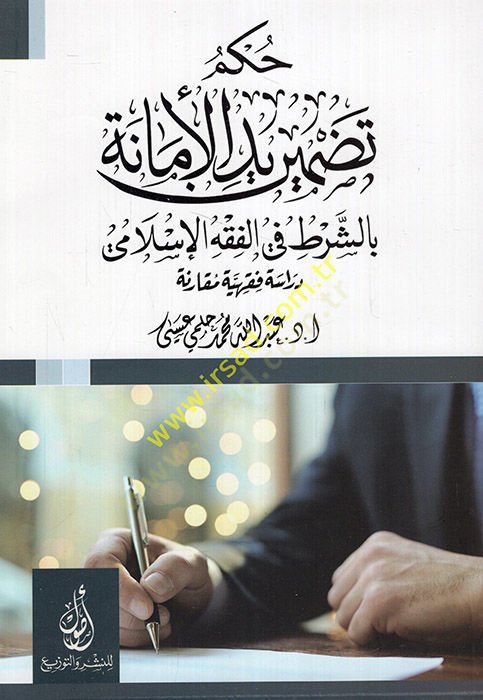 حُكمُ
تَضْمِين يدِ الأمَانة
بالشَّرط في الفقه الإسلامي
دراسة فقهية مقارنة
أ.د. عبد الله محمد حلمي عيسى
www.irsad.com.tr
للنشر والتوزيع